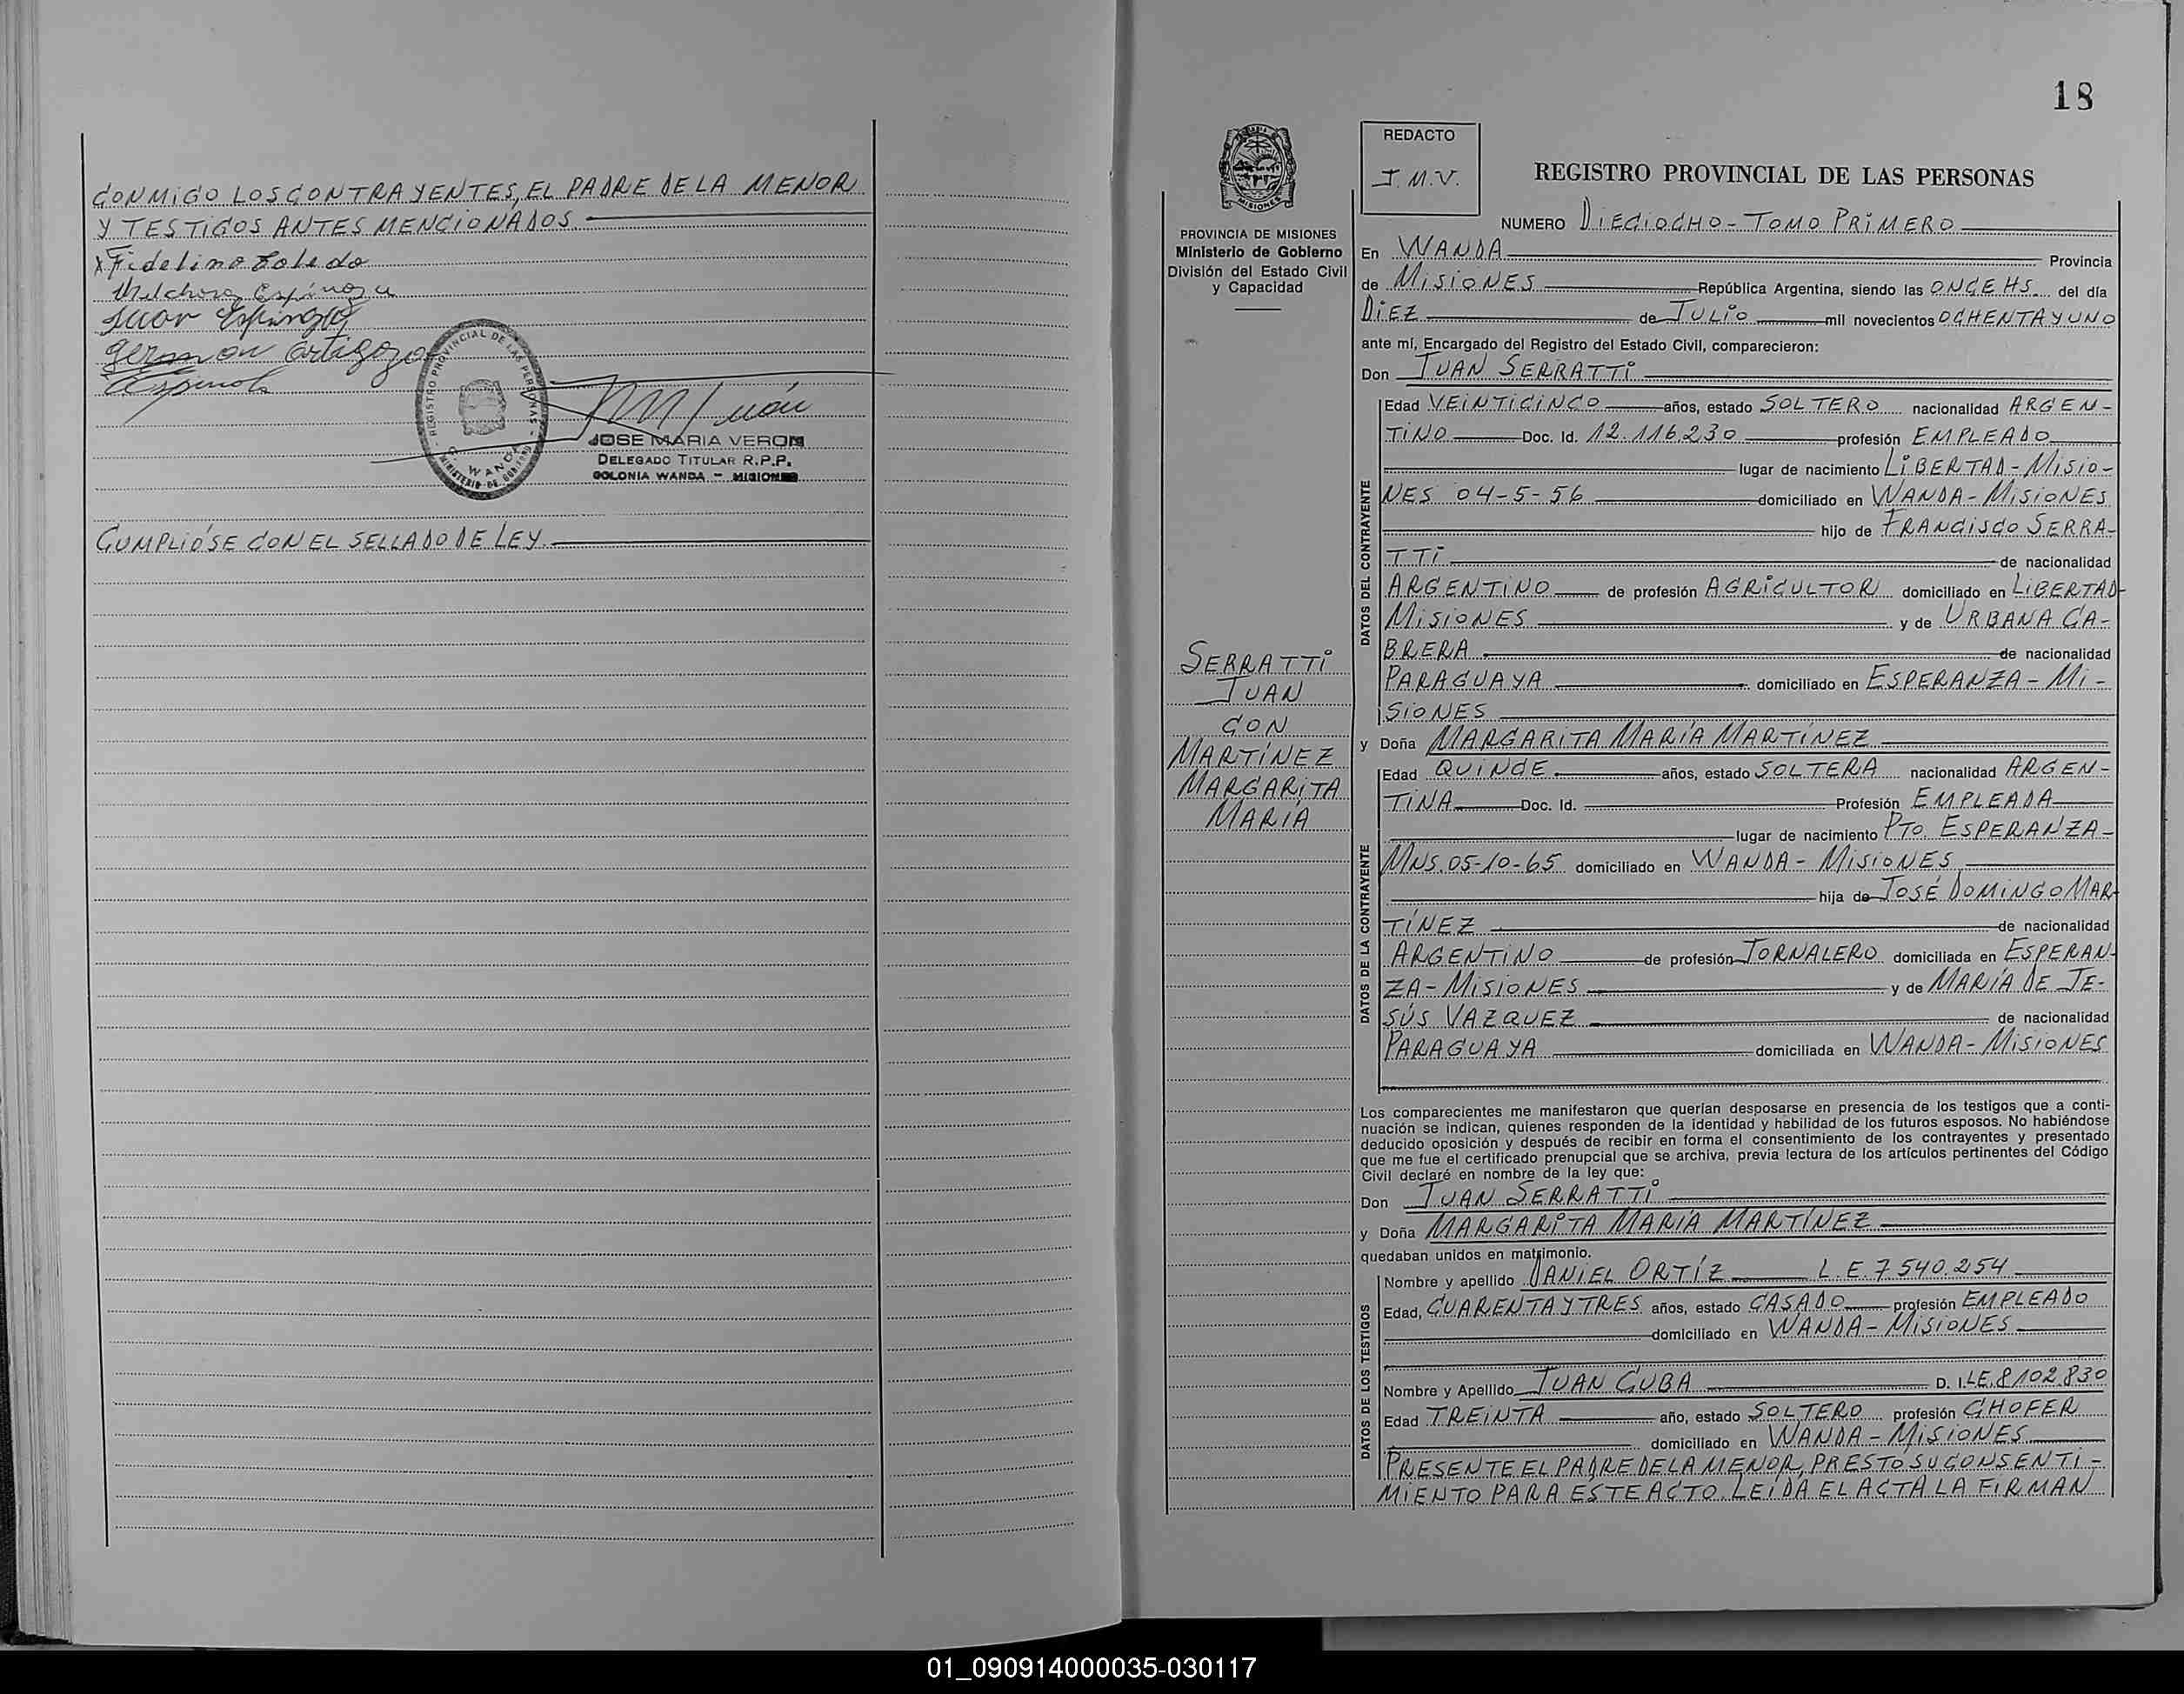 CONMIGO LOS CONTRAYENTES, EL PADRE DE LA MENOR
Y TESTIGOS ANTES MENCIONADOS.
x Fidelino Toledo
Melchora Espinoza
Juan Espinoza
German Ortigoza
Espinola
REGISTRO PROVINCIAL DE LAS PERSONAS
WANDA
MINISTERIO DE GOBIERNO
JOSE MARIA VERON
DELEGADO TITULAR R.P.P.
COLONIA WANDA - MISIONES
CUMPLIÓSE CON EL SELLADO DE LEY.
18
REDACTO
J.M.V.
REGISTRO PROVINCIAL DE LAS PERSONAS
MISIONES
PROVINCIA DE MISIONES
Ministerio de Gobierno
División del Estado Civil
y Capacidad
SERRATTI
JUAN
CON
MARTÍNEZ
MARGARITA
MARÍA
NUMERO DIECIOCHO - TOMO PRIMERO
En WANDA Provincia
de MISIONES República Argentina, siendo las ONCE HS. del día
DIEZ de JULIO mil novecientos OCHENTA Y UNO
ante mí, Encargado del Registro del Estado Civil, comparecieron:
Don JUAN SERRATTI
DATOS DEL CONTRAYENTE
Edad VEINTICINCO años, estado SOLTERO nacionalidad ARGEN-
TINO Doc. Id. 12.116.230 profesión EMPLEADO
lugar de nacimiento LIBERTAD - MISIO-
NES 04-5-56 domiciliado en WANDA - MISIONES
hijo de FRANCISCO SERRA-
TTI de nacionalidad
ARGENTINO de profesión AGRICULTOR domiciliado en LIBERTAD-
MISIONES y de URBANA CA-
BRERA de nacionalidad
PARAGUAYA domiciliado en ESPERANZA - MI-
SIONES
y Doña MARGARITA MARÍA MARTÍNEZ
DATOS DE LA CONTRAYENTE
Edad QUINCE años, estado SOLTERA nacionalidad ARGEN-
TINA Doc. Id. Profesión EMPLEADA
lugar de nacimiento PTO. ESPERANZA-
MNS. 05-10-65 domiciliado en WANDA - MISIONES
hija de JOSÉ DOMINGO MAR-
TÍNEZ de nacionalidad
ARGENTINO de profesión JORNALERO domiciliada en ESPERAN-
ZA - MISIONES y de MARÍA DE JE-
SÚS VAZQUEZ de nacionalidad
PARAGUAYA domiciliada en WANDA - MISIONES
Los comparecientes me manifestaron que querían desposarse en presencia de los testigos que a conti-
nuación se indican, quienes responden de la identidad y habilidad de los futuros esposos. No habiéndose
deducido oposición y después de recibir en forma el consentimiento de los contrayentes y presentado
que me fue el certificado prenupcial que se archiva, previa lectura de los artículos pertinentes del Código
Civil declaré en nombre de la ley que:
Don JUAN SERRATTI
y Doña MARGARITA MARÍA MARTÍNEZ
quedaban unidos en matrimonio.
DATOS DE LOS TESTIGOS
Nombre y apellido DANIEL ORTÍZ L.E. 7.540.254
Edad, CUARENTA Y TRES años, estado CASADO profesión EMPLEADO
domiciliado en WANDA - MISIONES
Nombre y Apellido JUAN CUBA D. I. LE. 8.102.830
Edad TREINTA año, estado SOLTERO profesión CHOFER
domiciliado en WANDA - MISIONES
PRESENTE EL PADRE DE LA MENOR, PRESTO SU CONSENTI-
MIENTO PARA ESTE ACTO. LEÍDA EL ACTA LA FIRMAN
01_090914000035-030117